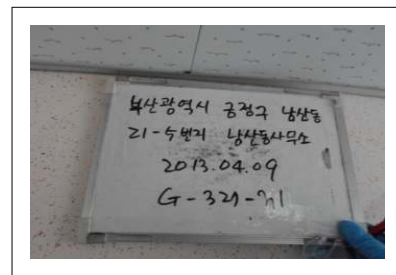 부산광역시 금정구 남산동
21-5번지 남산동사무소
2013.04.09